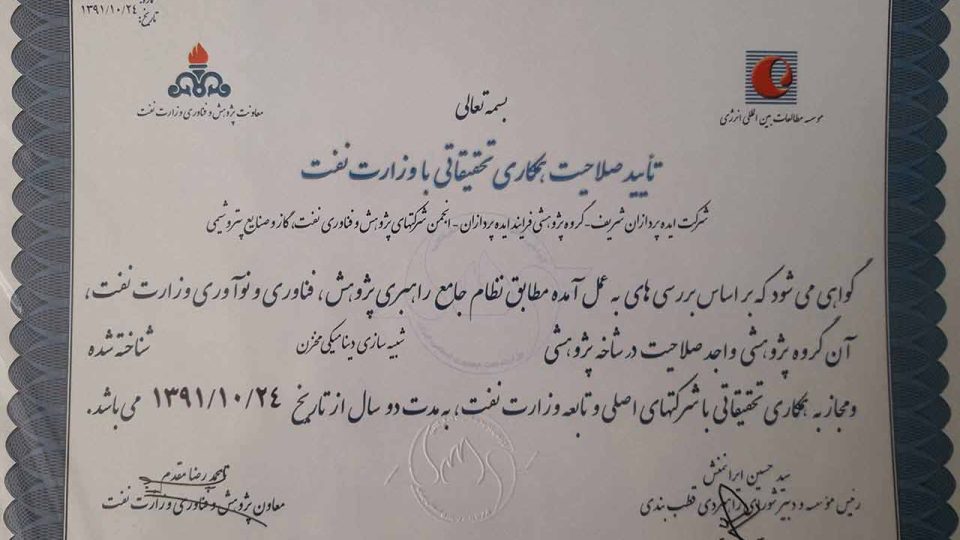 تاریخ: ۱۳۹۱/۱۰/۲۴
موسسه مطالعات بین المللی انرژی
معاونت پژوهش و فناوری وزارت نفت
بسمه تعالی
تأیید صلاحیت همکاری تحقیقاتی با وزارت نفت
شرکت ایده پردازان شریف - گروه پژوهشی فرایند ایده پردازان - انجمن شرکتهای پژوهش و فناوری نفت، گاز و صنایع پتروشیمی
گواهی می شود که بر اساس بررسی های به عمل آمده مطابق نظام جامع راهبری پژوهش، فناوری و نوآوری وزارت نفت،
آن گروه پژوهشی واجد صلاحیت در شاخه پژوهشی شبیه سازی دینامیکی مخزن شناخته شده
و مجاز به همکاری تحقیقاتی با شرکتهای اصلی و تابعه وزارت نفت، به مدت دو سال از تاریخ ۱۳۹۱/۱۰/۲۴ می باشد.
سید حسین ایرانمنش
رئیس مؤسسه و دبیر شورای راهبردی قطب بندی
محمد رضا مقدم
معاون پژوهش و فناوری وزارت نفت